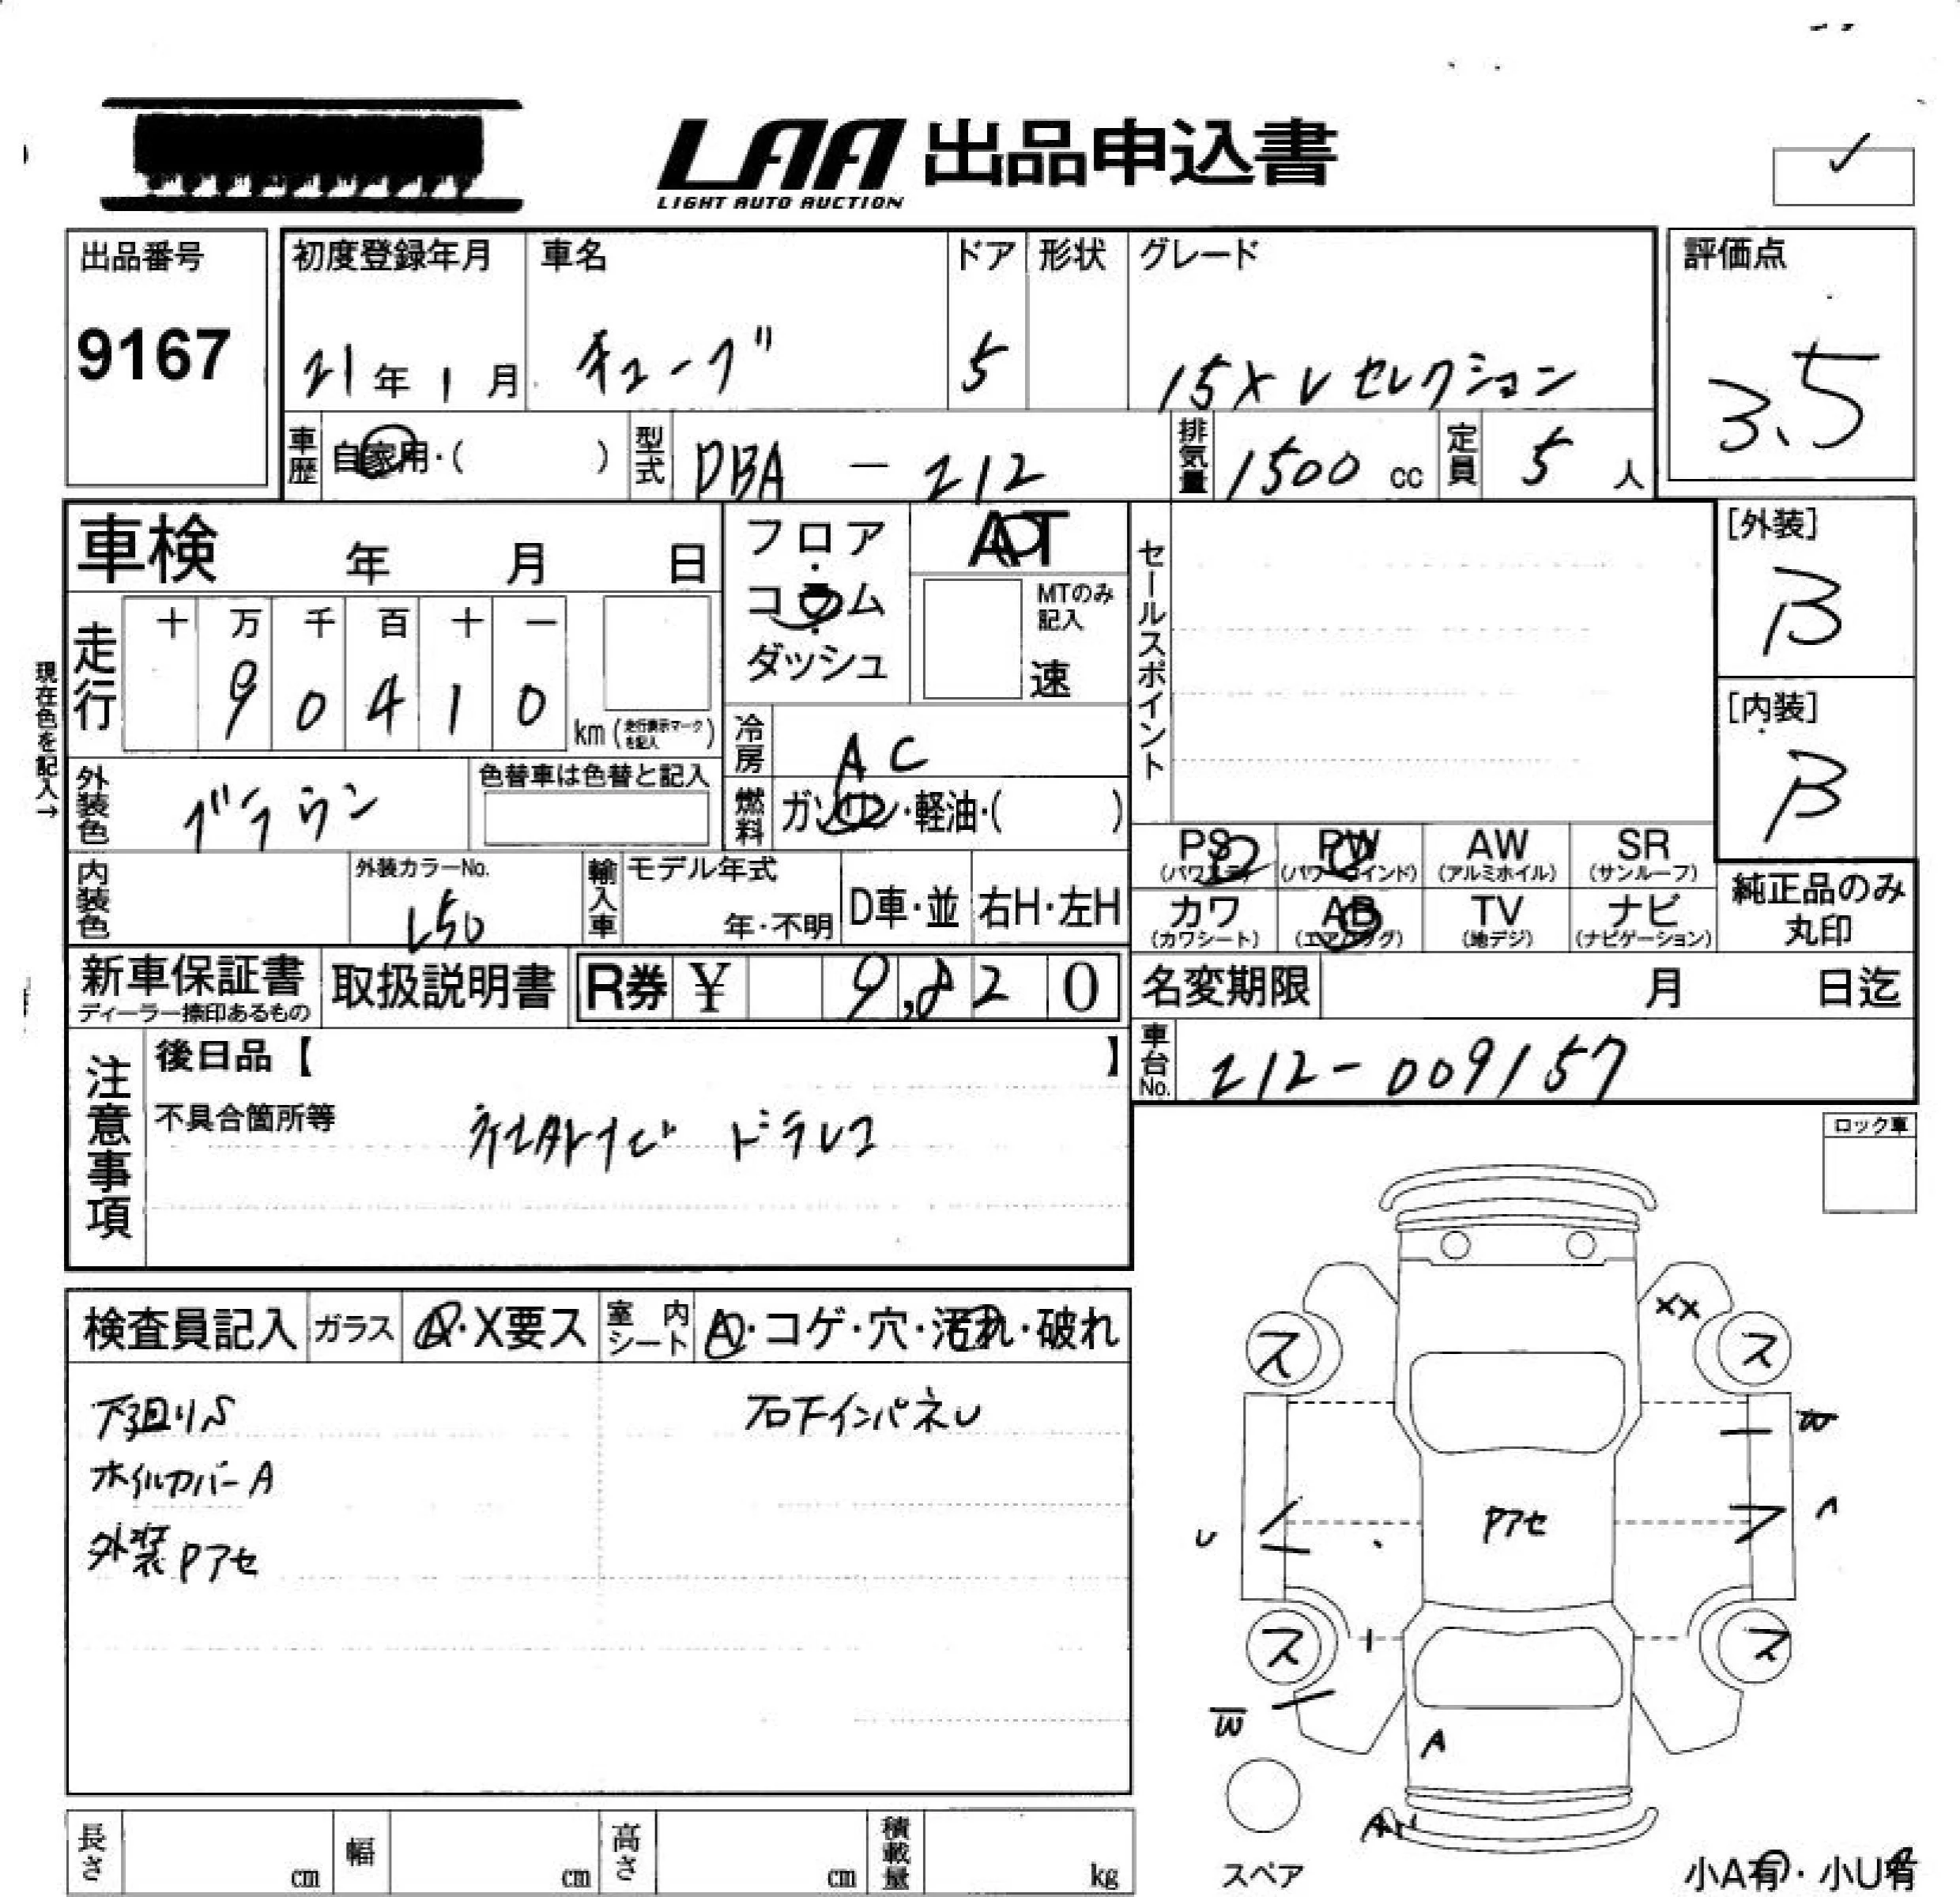 LAA 出品申込書
LIGHT AUTO AUCTION
出品番号
9167
初度登録年月
21年1月
車名
キューブ
ドア
5
形状
グレード
15X Vセレクション
評価点
3.5
車歴
自家用・( )
型式
DBA - Z12
排気量
1500 cc
定員
5 人
車検 年 月 日
フロア・コラム・ダッシュ
AT
MTのみ記入
速
セールスポイント
[外装]
B
[内装]
B
現在色を記入→
走行
十 万 千 百 十 一
9 0 4 1 0
km (走行表示マークを記入)
冷房
AC
外装色
ブラウン
色替車は色替と記入
燃料
ガソリン・軽油・( )
PS (パワステ)
PW (パワーウインド)
AW (アルミホイル)
SR (サンルーフ)
カワ (カワシート)
AB (エアバッグ)
TV (地デジ)
ナビ (ナビゲーション)
純正品のみ丸印
内装色
外装カラーNo.
L50
輸入車
モデル年式
年・不明
D車・並
右H・左H
新車保証書
ディーラー捺印あるもの
取扱説明書
R券 ¥ 9,820
名変期限 月 日迄
車台No.
Z12-009157
注意事項
後日品【 】
不具合箇所等
社外ナビ ドラレコ
ロック車
検査員記入
ガラス
A・X要ス
室内シート
A・コゲ・穴・汚れ・破れ
下回りS
ホイルカバーA
外装Pアセ
右下インパネU
XX
ス ス
W
U
Pアセ
A
ス ス
W
A
スペア
小A有・小U有
長さ cm
幅 cm
高さ cm
積載量 kg